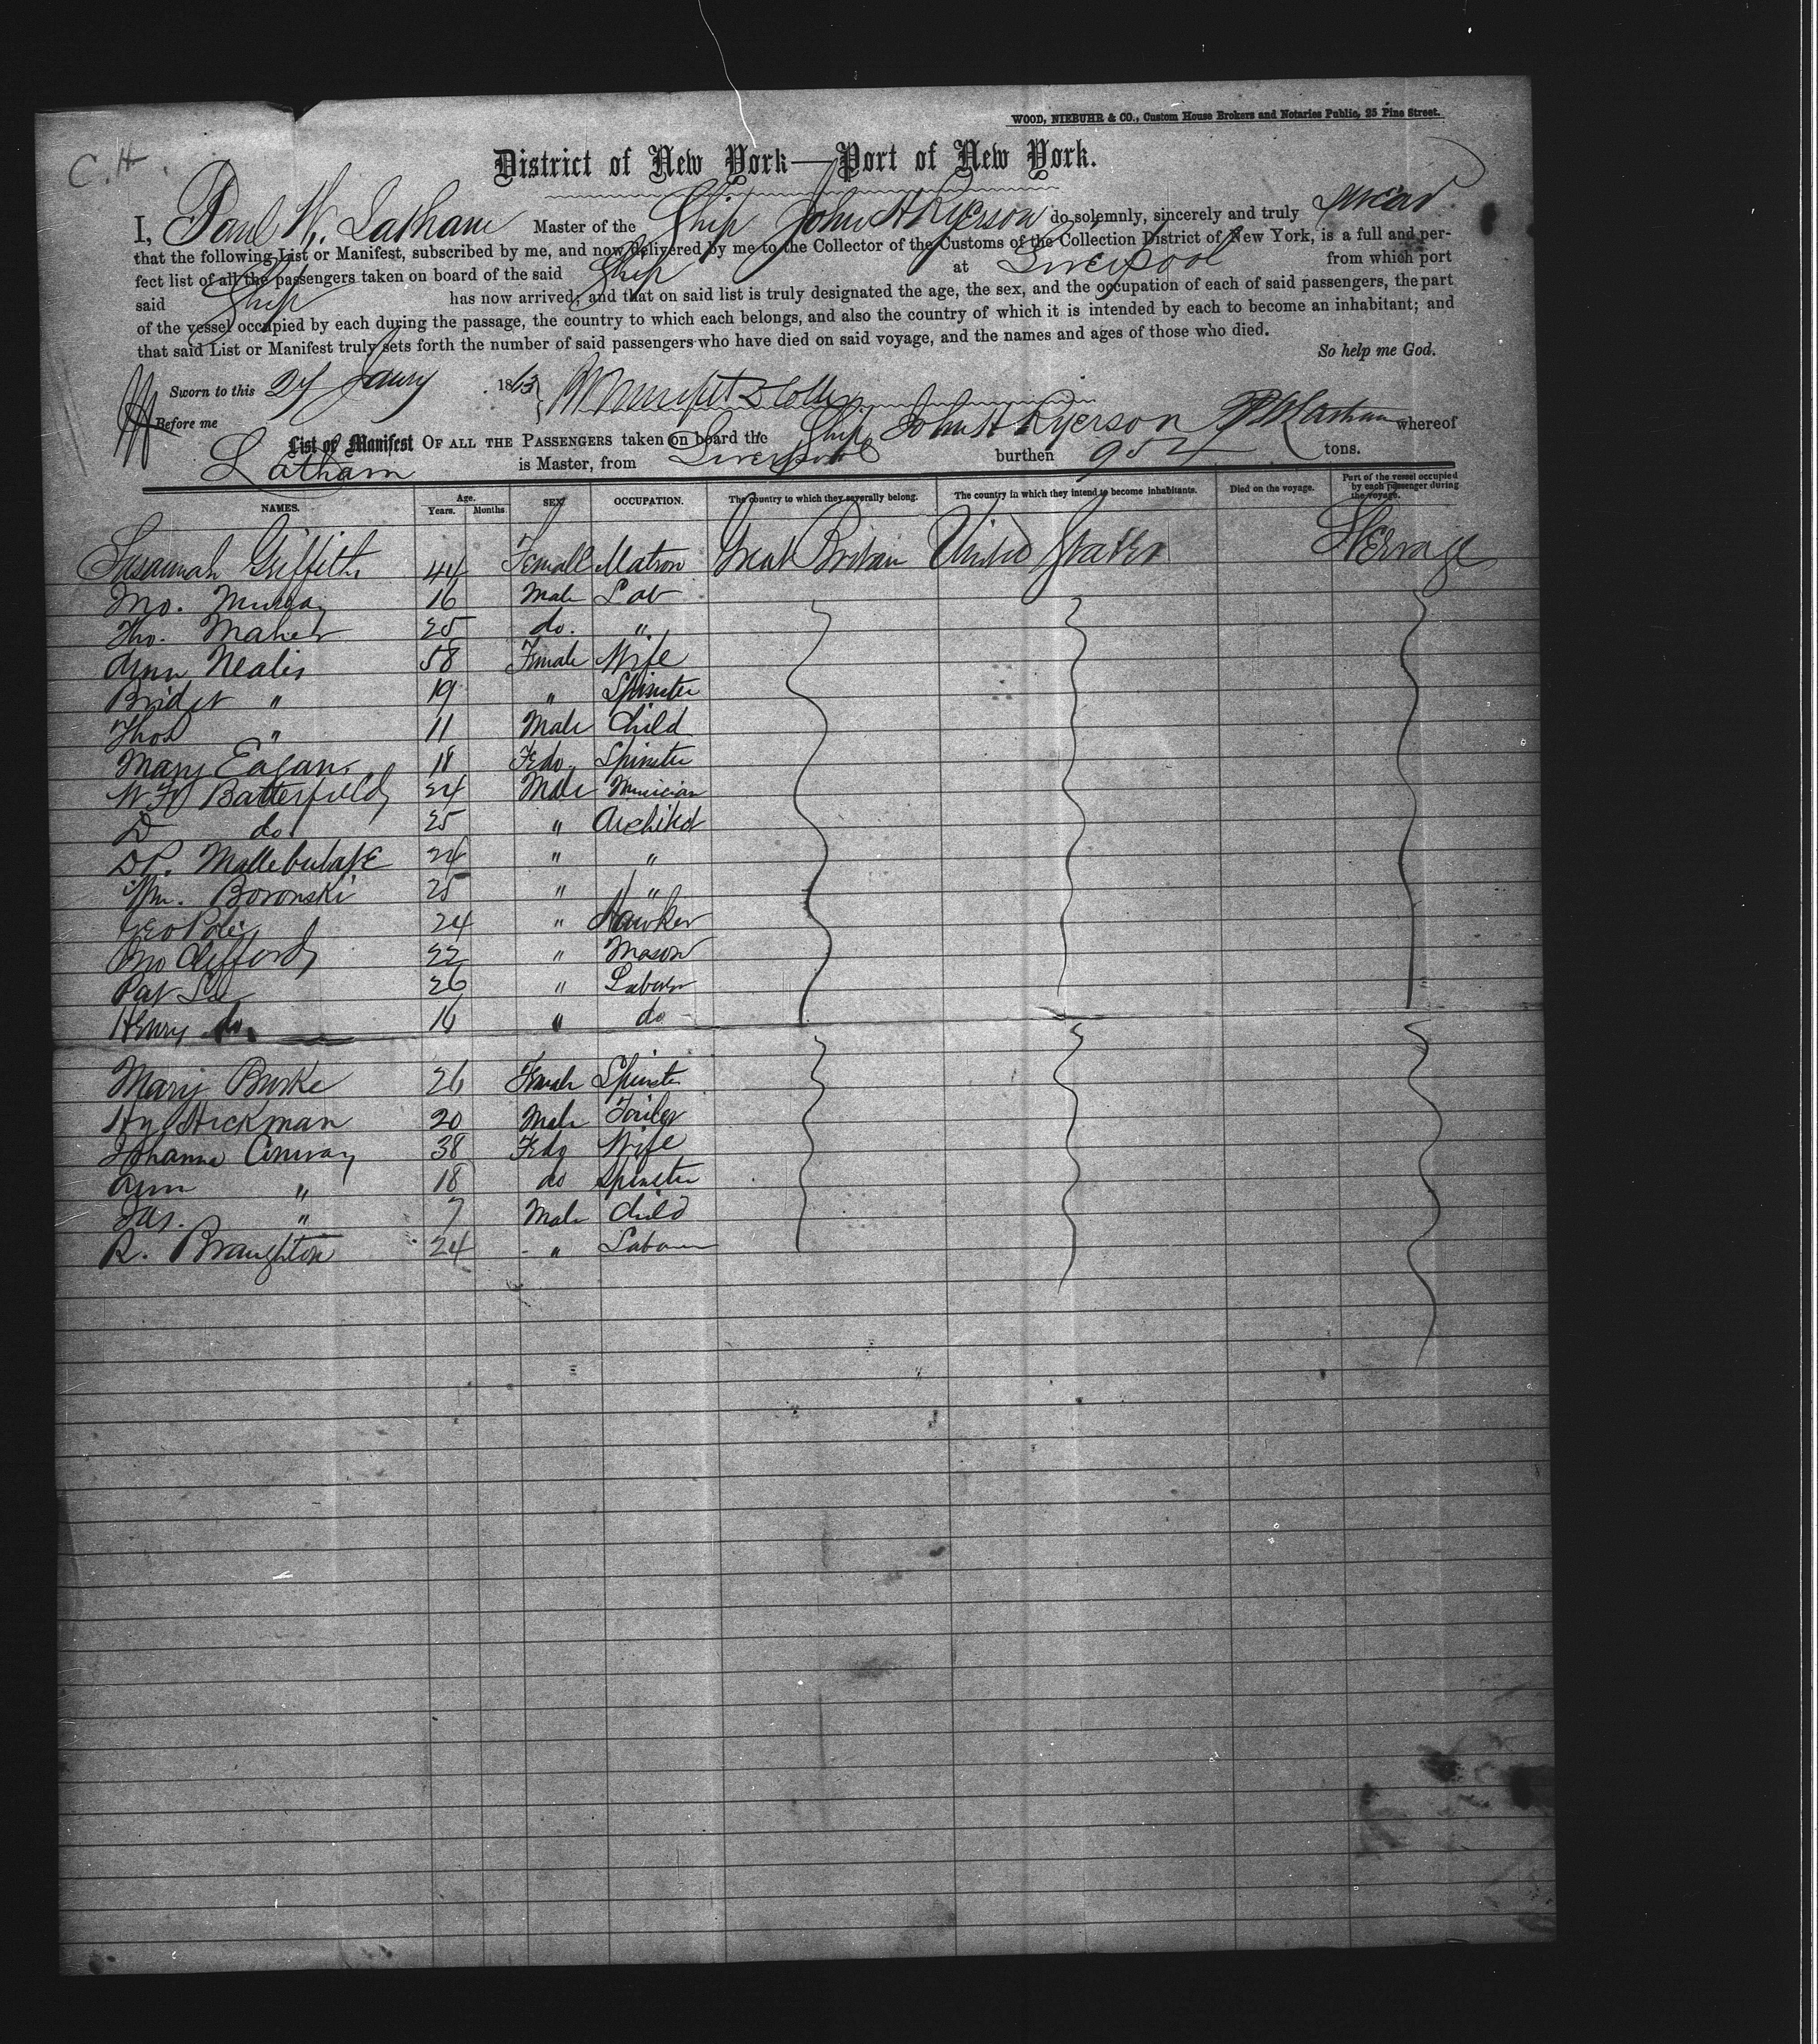 WOOD, NIEBUHR & CO., Custom House Brokers and Notaries Public, 25 Pine Street.
C. H.
District of New York—Port of New York.
I, Paul W. Latham Master of the Ship John H Ryerson do solemnly, sincerely and truly swear
that the following List or Manifest, subscribed by me, and now delivered by me to the Collector of the Customs of the Collection District of New York, is a full and per-
fect list of all the passengers taken on board of the said Ship at Liverpool from which port
said Ship has now arrived; and that on said list is truly designated the age, the sex, and the occupation of each of said passengers, the part
of the vessel occupied by each during the passage, the country to which each belongs, and also the country of which it is intended by each to become an inhabitant; and
that said List or Manifest truly sets forth the number of said passengers who have died on said voyage, and the names and ages of those who died.
So help me God.
Sworn to this 27 Jany 1863
Before me
List or Manifest OF ALL THE PASSENGERS taken on board the Ship John H Ryerson P W Latham whereof
Latham is Master, from Liverpool burthen 952 tons.
NAMES. Age. Years. Months SEX OCCUPATION. The country to which they severally belong. The country in which they intend to become inhabitants. Died on the voyage. Part of the vessel occupied by each passenger during the voyage.
Susannah Griffiths 44 Female Matron Great Britain United States Sterrage
Jno. Murray 16 Male Lab
Tho. Maher 25 do. "
Ann Nealis 58 Female Wife
Bridget " 19 " Spinster
Thos " 11 Male Child
Mary Eagan 18 Fedo. Spinster
W Batterfield 24 Male Musician
D do 25 " Architect
DP. 24 " "
Wm. Boronski 25 " "
Geo 24 " Hawker
Jno Clifford 22 " Mason
Pat Lee 26 " Laborer
Henry do. 16 " do
Mary Burke 26 Female Spinster
Hy Hickman 20 Male Toiler
Johanna Conway 38 Fedo Wife
Ann " 18 do Spinster
Jas. " 7 Male Child
R. Braughton 24 " Labour